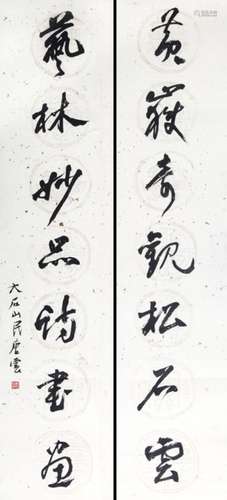 黄嶽奇觀松石雲
藝林妙品詩書畫
大石山民唐雲